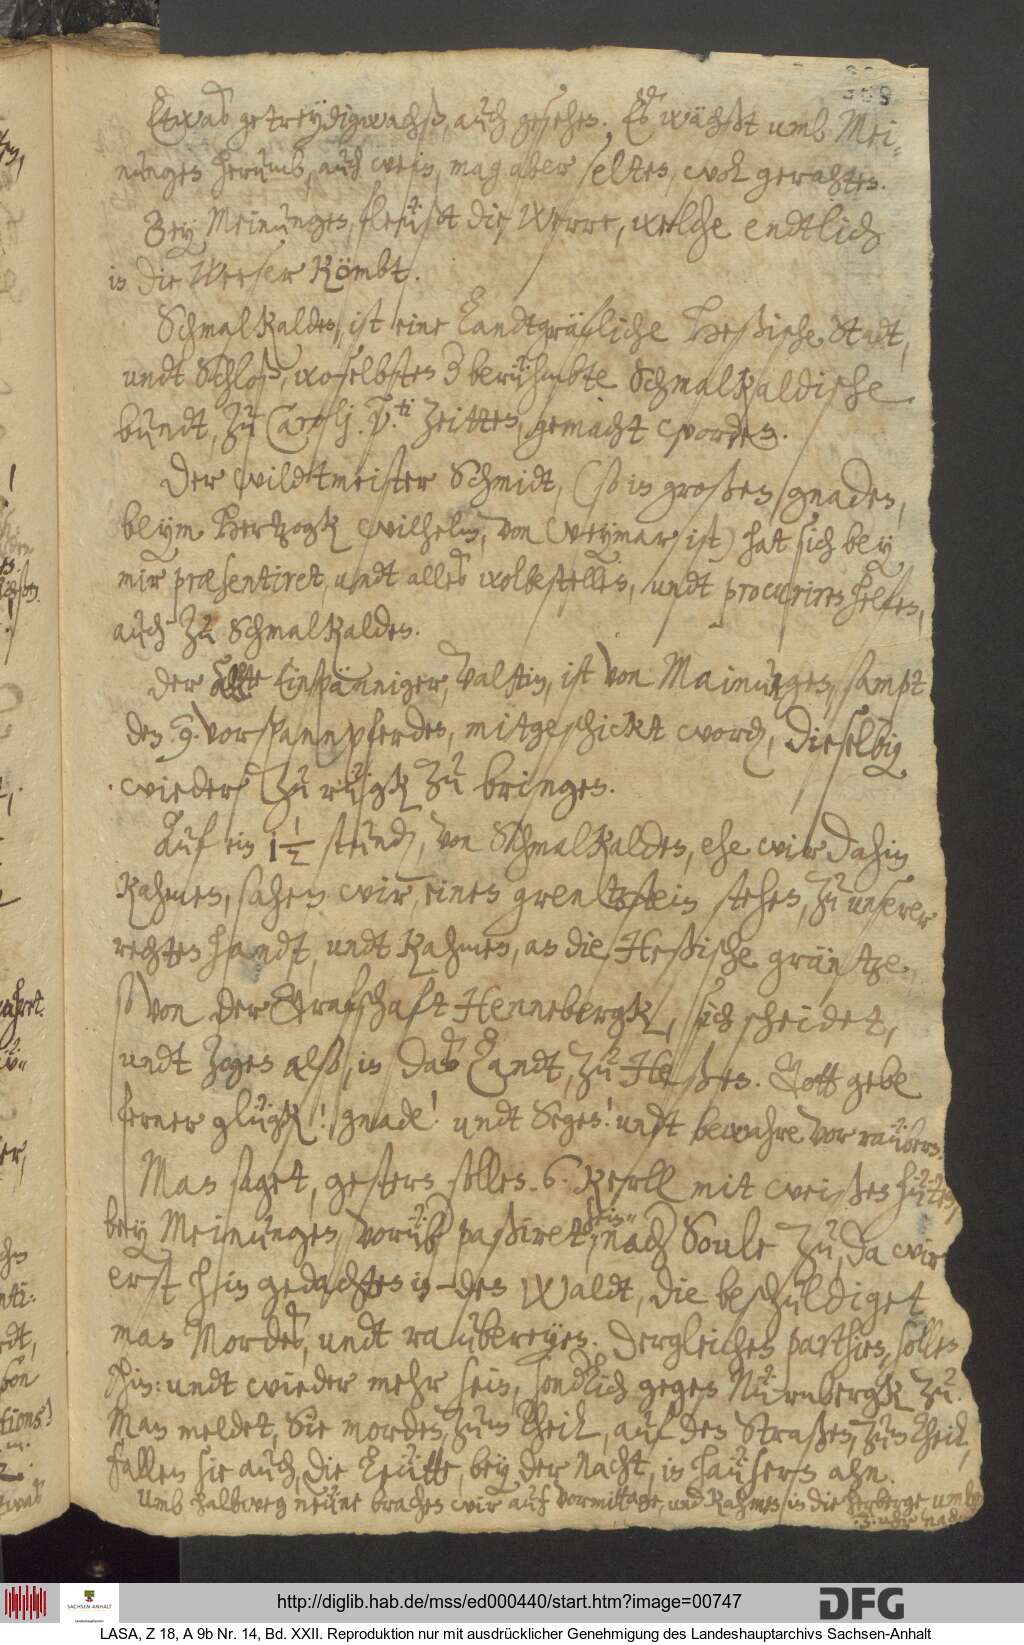 Etwaß getreydigwachß, auch gesehen. Es wächßt umb Mei-
nungen herumb, auch wein, mag aber selten, wol gerahten.
Bey Meinungen, fleüst die Werre, welche endtlich
in die Weeser kömbt.
Schmalkalden, ist eine Landtgräfliche Heßische Stadt,
undt Schloß, woselbsten der berühmbte Schmalkaldische
bundt, zu Carolj V.ti zeitten, gemacht worden.
Der wildtmeister Schmidt, (so in großen gnaden,
beym Hertzogk Wilhelm, von Weymar ist) hat sich bey
mir præsentiret, undt alles wolbestellen, undt procuriren helfen,
auch zu Schmalkalden.
Der Einspänniger, Valtin, ist von Mainungen, sampt
den 9 vorspannpferden, mitgeschickt word, dieselbig
wieder zu rügk zu bringen.
Auf ein 1½ stund, von Schmalkalden, ehe wir dahin
kahmen, sahen wir, einen grentzstein stehen, zu unserer
rechten handt, undt kahmen, an die Heßische gräntze,
so von der Grafschaft Hennebergk, sich scheidet,
undt zogen also, in daß Landt, zu Heßen. Gott gebe
ferner glügk! gnade! undt Segen! undt bewahre vor räubern.
Man saget, gestern sollen 6 Kerll mit weißen hüten,
bey Meinungen, vorüb paßiret sein, nach Soule zu, da wir
erst hin gedachten in den Waldt, die beschuldiget
man Mordes, undt raubereyen. Dergleichen parthien, sollen
hin: undt wieder mehr sein, sonderlich gegen Nürnbergk zu.
Man meldet, Sie morden, zum theil, auf den Straßen, zum theil,
fallen sie auch, die Leütte, bey der Nacht, in haüsern ahn.
Umb halbweg neüne brachen wir auf vormittage, und kahmen in die herberge umb
3 uhr nach
308
http://diglib.hab.de/mss/ed000440/start.htm?image=00747
SACHSEN-ANHALT
Landeshauptarchiv
DFG
LASA, Z 18, A 9b Nr. 14, Bd. XXII. Reproduktion nur mit ausdrücklicher Genehmigung des Landeshauptarchivs Sachsen-Anhalt